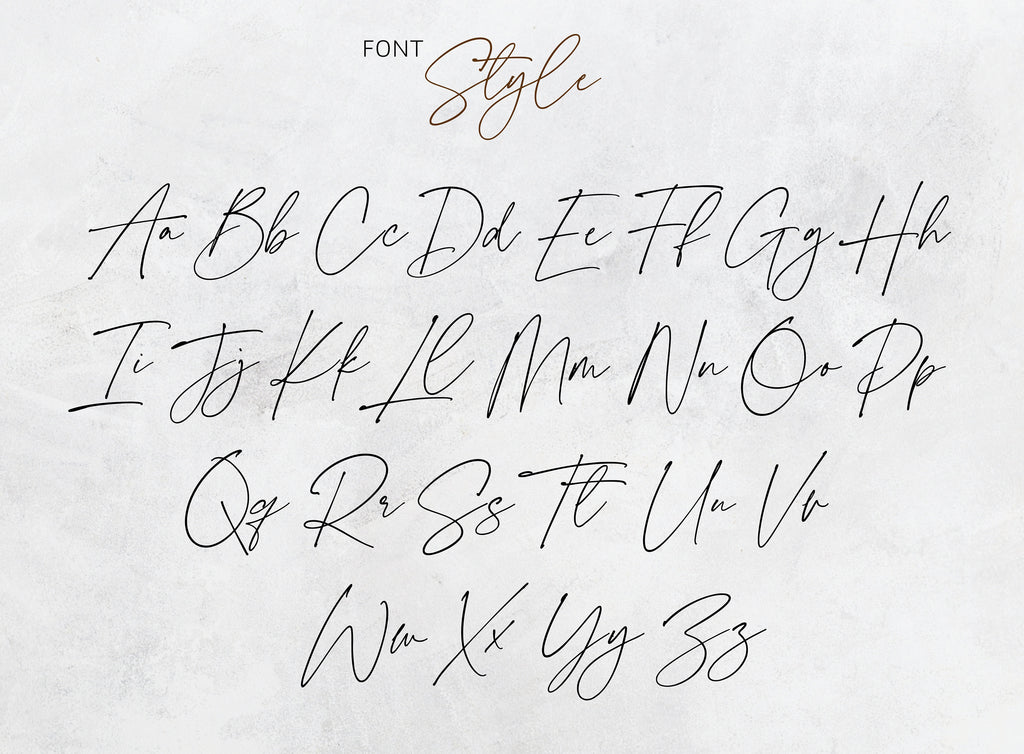 FONT Style
Aa Bb Cc Dd Ee Ff Gg Hh
Ii Jj Kk Ll Mm Nn Oo Pp
Qq Rr Ss Tt Uu Vv
Ww Xx Yy Zz